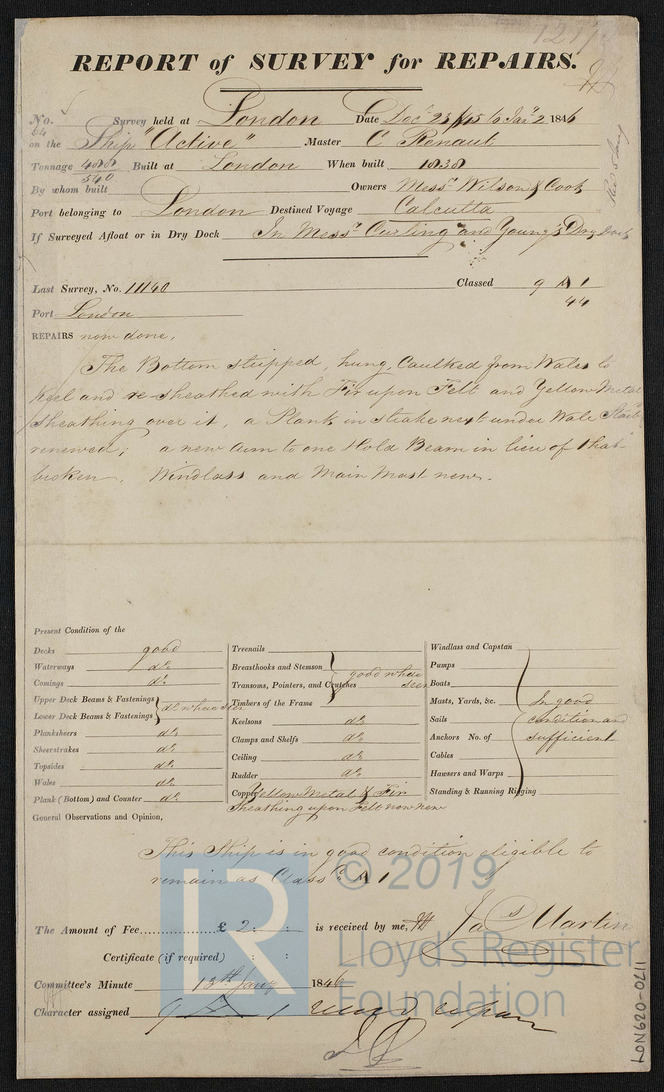 REPORT of SURVEY for REPAIRS.
No. 64 Survey held at London Date Decr 23 1845 to Jany 2 1846
on the Ship "Active" Master C Renaut
Tonnage 408 Built at London When built 1838
540
By whom built Owners Messrs Wilson & Cook
Port belonging to London Destined Voyage Calcutta
If Surveyed Afloat or in Dry Dock In Messrs Curling and Young's Dry Dock
Last Survey, No. 11140 Classed 9 A 1
44
Port London
REPAIRS now done,
The Bottom stripped, hung, Caulked from Wales to
Keel and re-sheathed with Fir upon Felt and Yellow Metal
sheathing over it, a Plank in strake next under Wale
renewed, a new arm to one Hold Beam in lieu of that
broken. Windlass and Main Mast new.
Present Condition of the
Decks good
Waterways do
Comings do
Upper Deck Beams & Fastenings
Lower Deck Beams & Fastenings do where seen
Planksheers do
Sheerstrakes do
Topsides do
Wales do
Plank (Bottom) and Counter do
Treenails
Breasthooks and Stemson
Transoms, Pointers, and Crutches good where seen
Timbers of the Frame
Keelsons do
Clamps and Shelfs do
Ceiling do
Rudder do
Copper Yellow Metal & Fir
Sheathing upon Felt now new
Windlass and Capstan
Pumps
Boats
Masts, Yards, &c. In good
Sails condition and
Anchors No. of sufficient
Cables
Hawsers and Warps
Standing & Running Rigging
General Observations and Opinion,
This Ship is in good condition eligible to
remain as Classed A 1
The Amount of Fee £ 2 : : is received by me, Jas Martin
Certificate (if required) : :
Committee's Minute 13th Jany 1846
Character assigned 9 A 1
LR © 2019
Lloyd's Register
Foundation
LON620-0411